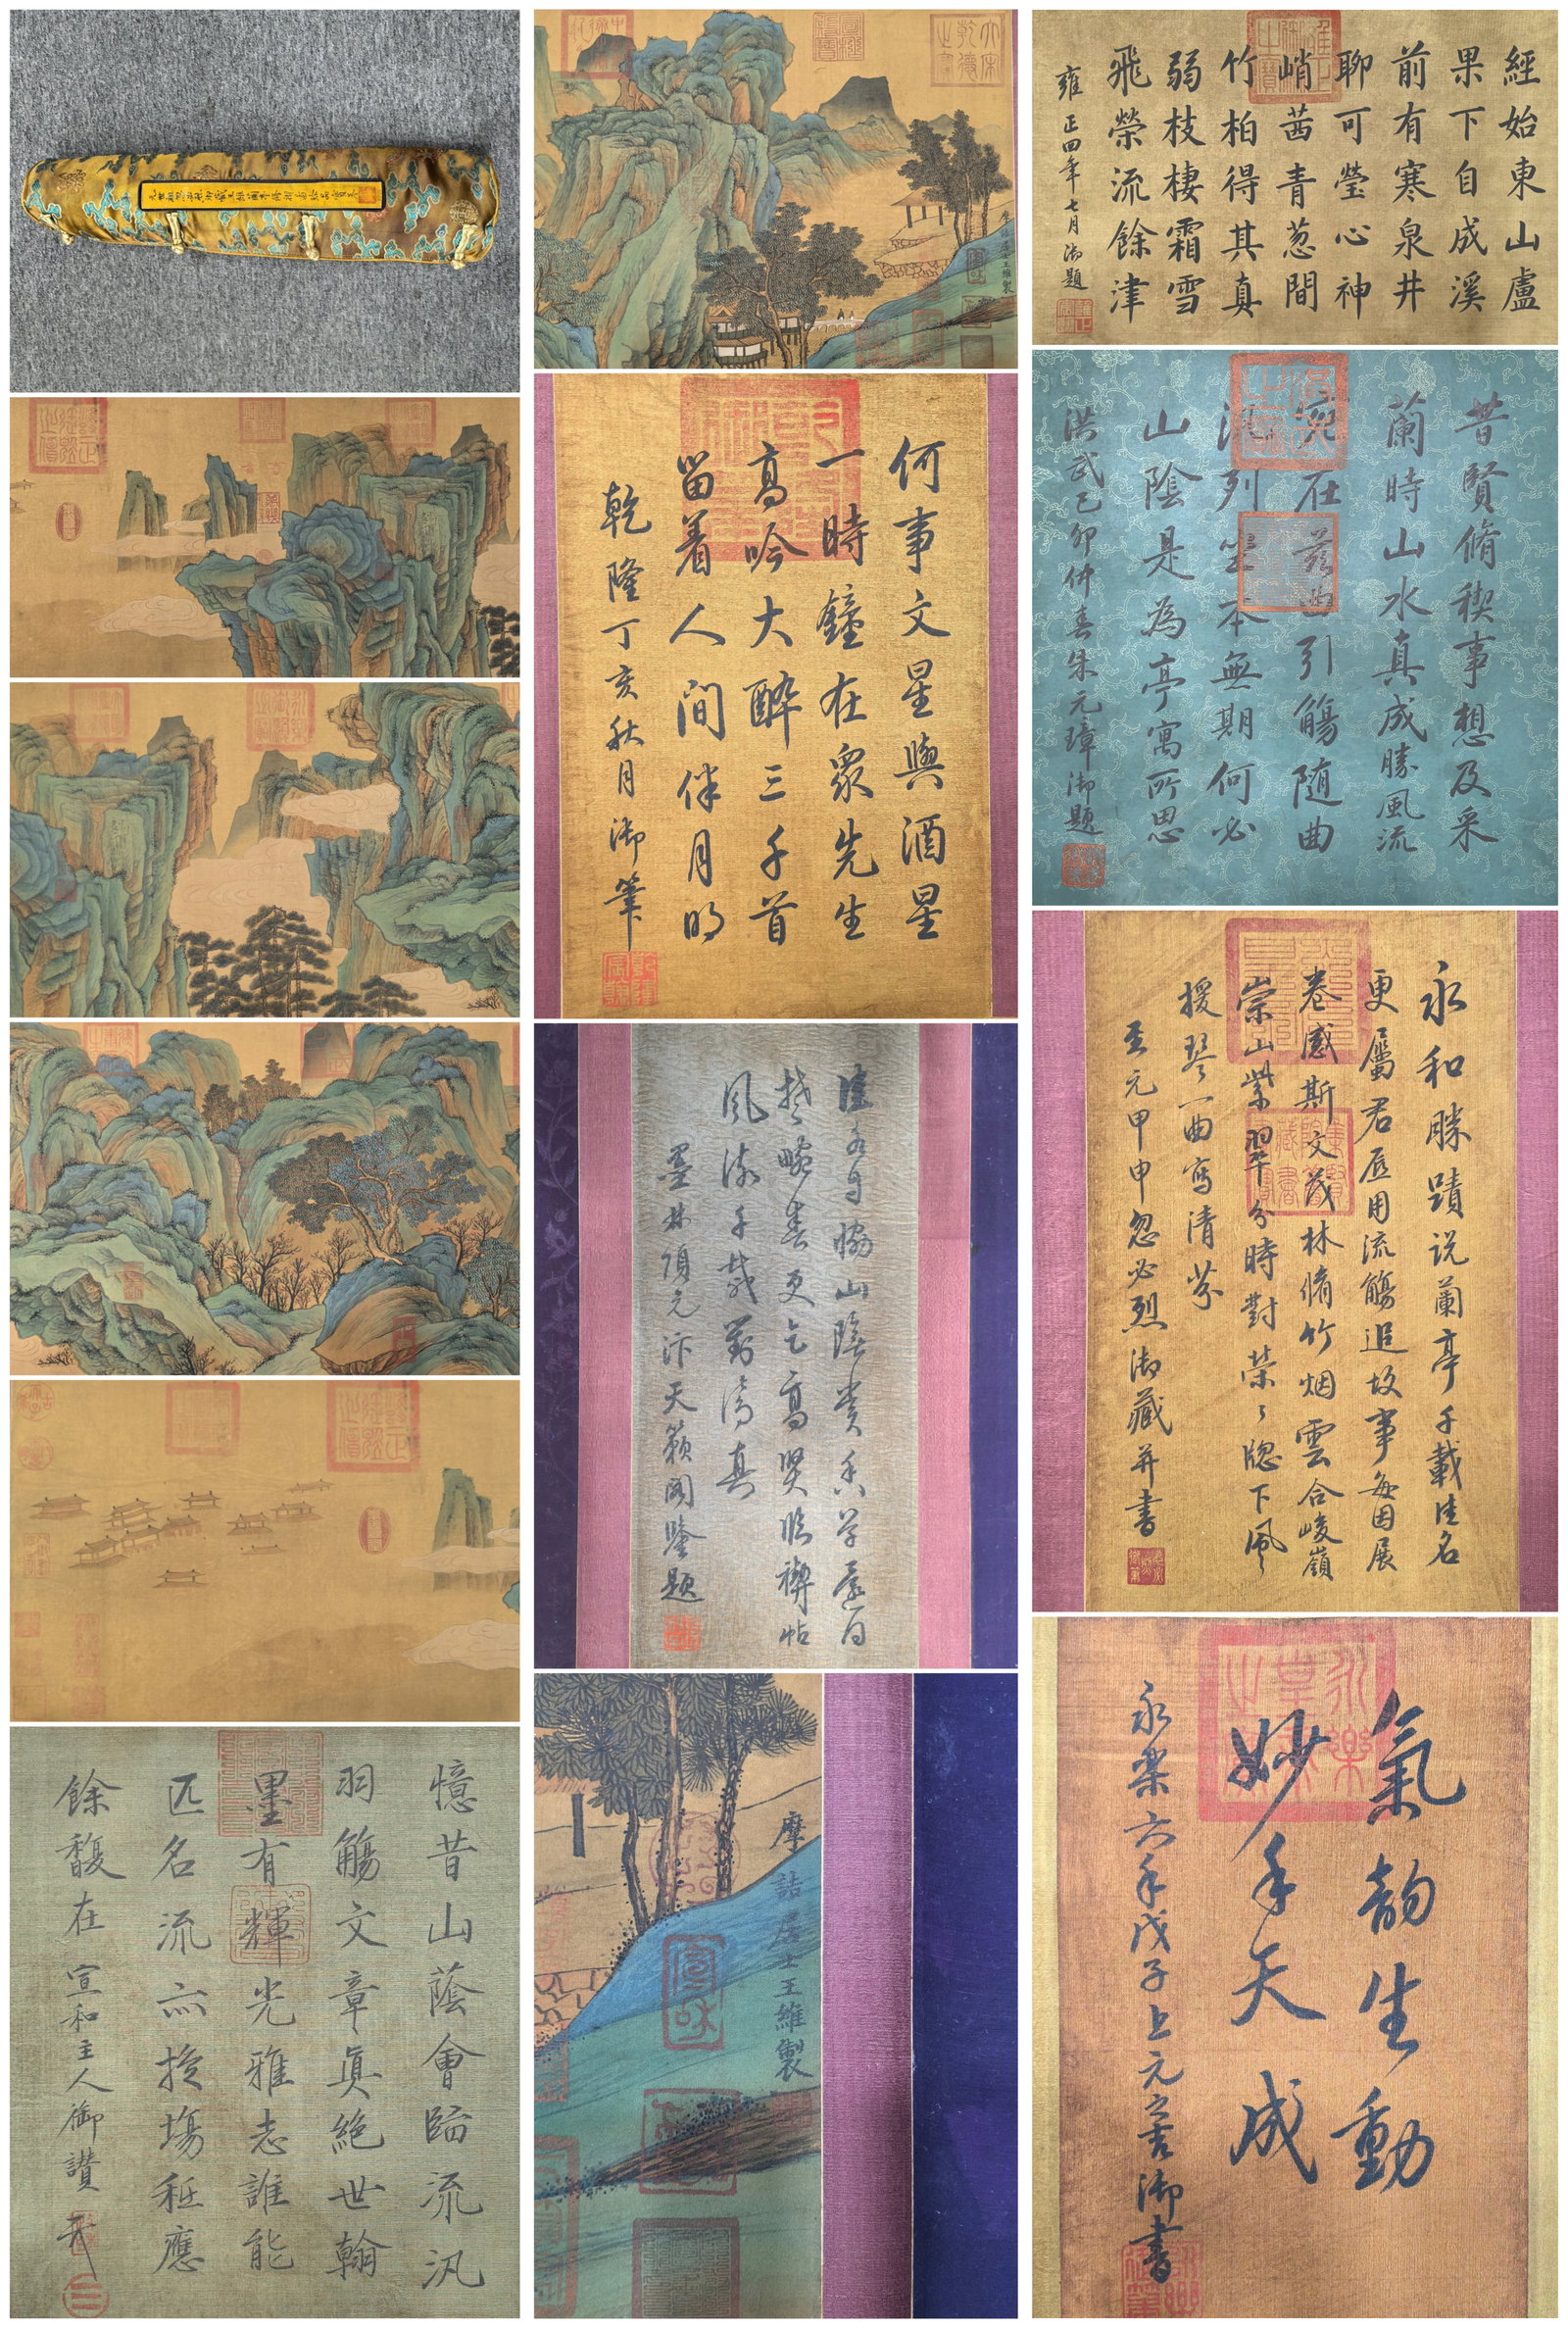 憶昔山蔭會臨流汎
羽觴文章眞絕世翰
墨有輝光雅志誰能
匹名流亦擅場秪應
餘馥在 宣和主人御讚
摩詰居士王維製
何事文星與酒星
一時鐘在衆先生
高吟大醉三千首
留着人間伴月明
乾隆丁亥秋月御筆
佳名自協山陰賞香草遙同
楚畹春更乞高賢臨禊帖
風流千載對清真
墨林項元汴天籟閣鑒題
摩詰居士王維製
經始東山廬
果下自成溪
前有寒泉井
聊可瑩心神
峭茜青葱間
竹柏得其真
弱枝棲霜雪
飛榮流餘津
雍正四年七月御題
昔賢脩稧事想及采
蘭時山水真成勝風流
宛在茲曲引觴隨曲
列坐本無期何必
山陰是為亭寓所思
洪武乙卯仲春朱元璋御題
永和勝蹟説蘭亭千載佳名
更屬君卮用流觴追故事每因展
卷感斯文茂林脩竹烟雲合峻嶺
崇山紫翠分時對榮々牕下風
援琴一曲寫清芬
至元甲申忽必烈御藏并書
氣韵生動
妙手天成
永樂六年戊子上元之吉御書